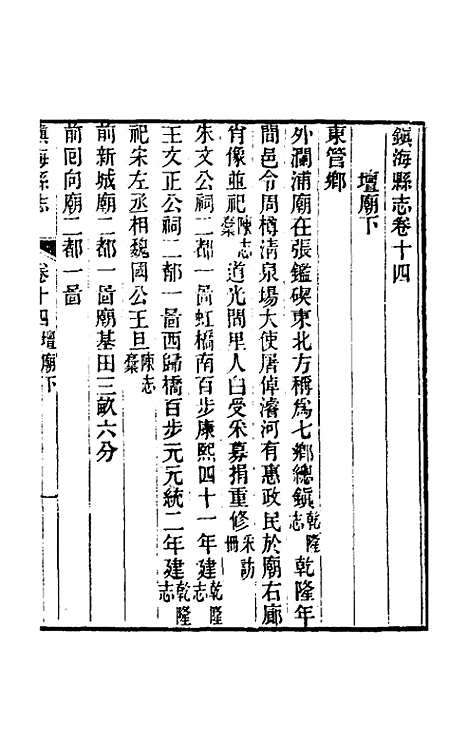 鎭海縣志卷十四
壇廟下
東管鄉
外瀾浦廟在張鑑碶東北方稱爲七鄉總鎭乾隆志乾隆年
間邑令周樽淸泉場大使屠倬濬河有惠政民於廟右廊
肖像並祀陳志稾道光間里人白受采募捐重修采訪冊
朱文公祠二都一啚虹橋南百步康熙四十一年建乾隆志
王文正公祠二都一啚西歸橋百步元元統二年建乾隆志
祀宋左丞相魏國公王旦陳志稾
前新城廟二都一啚廟基田三畝六分
前囘向廟二都一啚
鎭海縣志
卷十四壇廟下
一